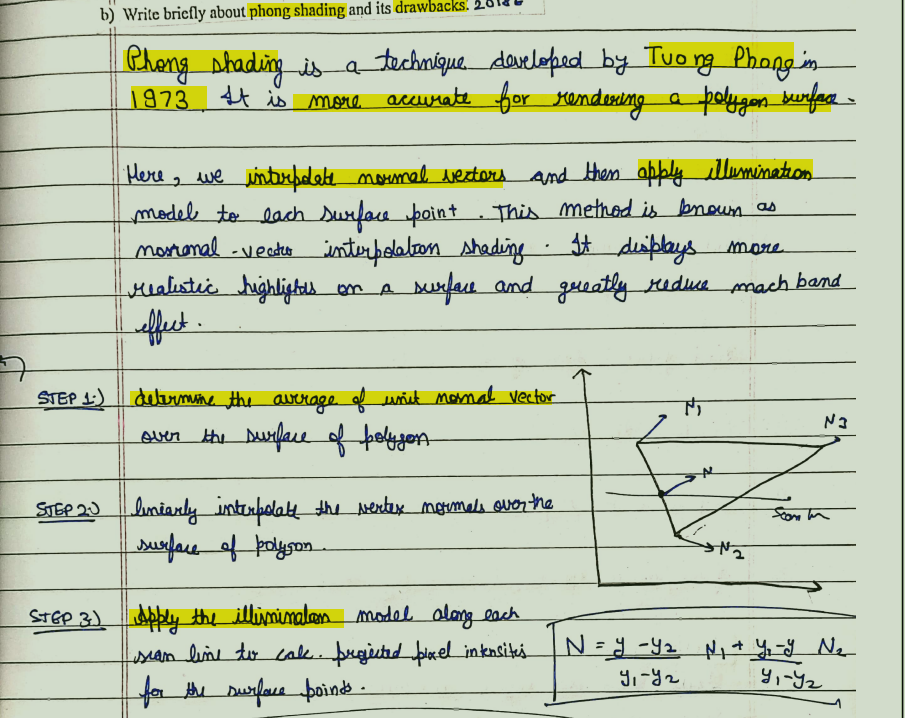 b) Write briefly about phong shading and its drawbacks. 2018
Phong shading is a technique developed by Tuong Phong in
1973 It is more accurate for rendering a polygon surface.
Here, we interpolate normal vectors and then apply illumination
model to each surface point. This method is known as
normal-vector interpolation shading. It displays more
realistic highlights on a surface and greatly reduce mach band
effect.
STEP 1:) determine the average of unit normal vector
over the surface of polygon
STEP 2:) linearly interpolate the vertex normals over the
surface of polygon.
STEP 3:) Apply the illumination model along each
scan line to calc. projected pixel intensities
for the surface points.
N1
N3
N
Scan
N2
N = y-y2 / y1-y2 N1 + y1-y / y1-y2 N2